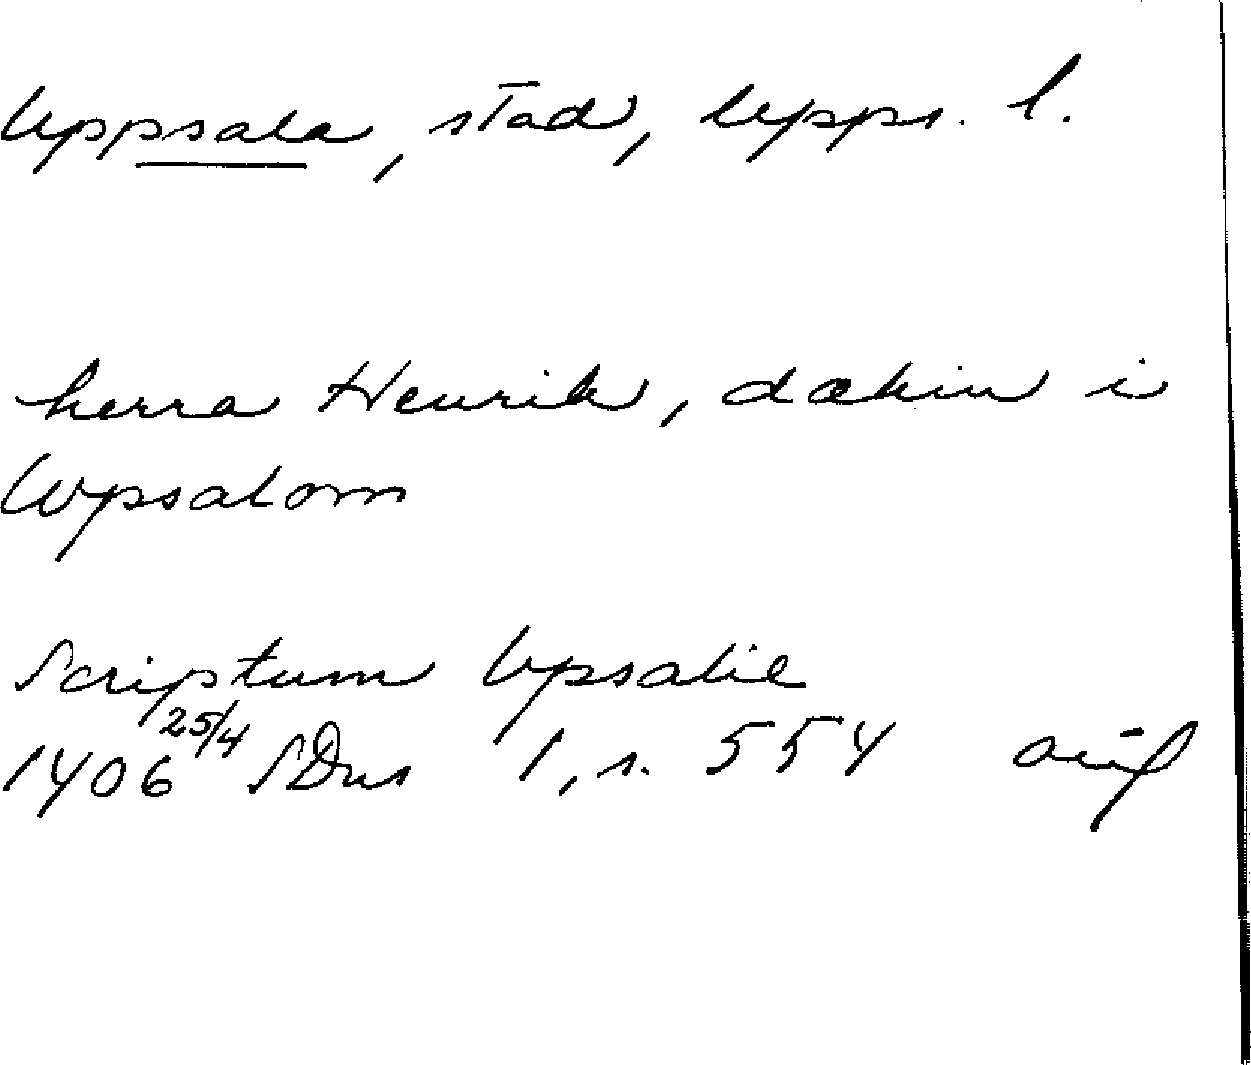 Uppsala, stad, Upps. l.
herra Henrik, dækin i
Wpsalom
Scriptum Upsalie
1406 25/4 SDns 1, s. 554